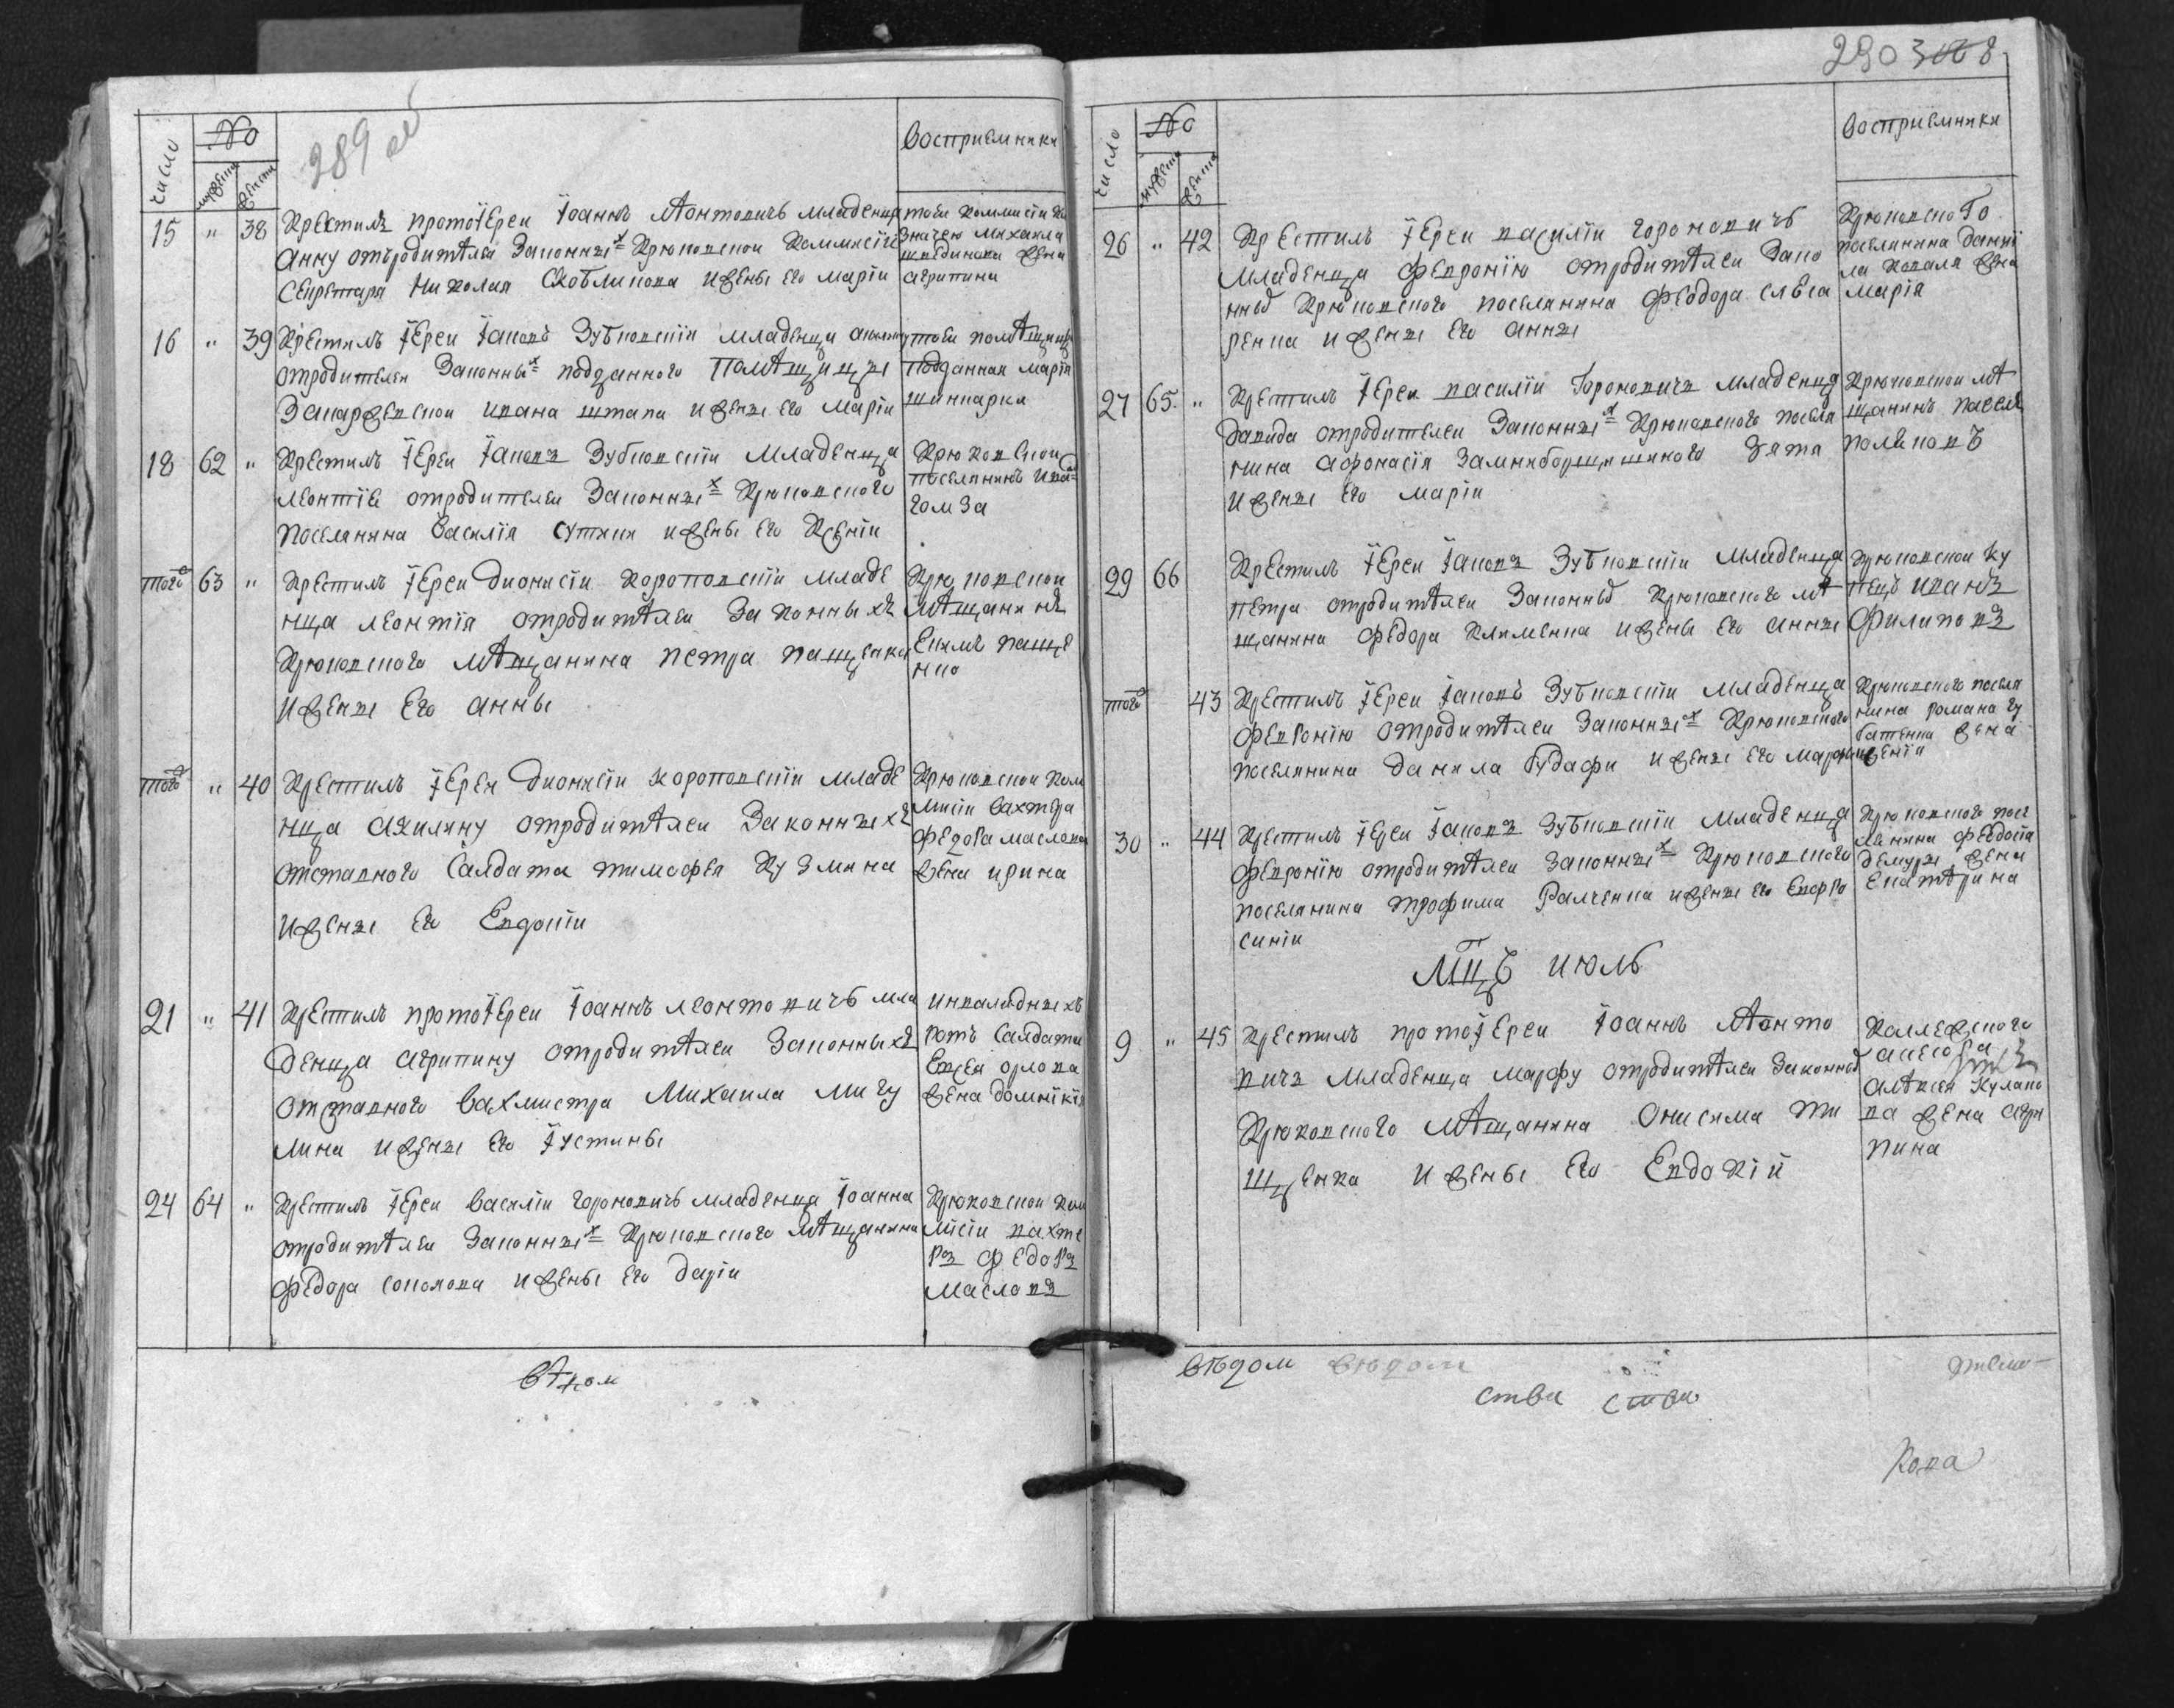 289 об
число
№
мужеска
женска
восприемники
15 " 38 Крестилъ протоіереи Іоаннъ Лѣонтовичь младенца
Анну отъродитѣлеи Законныхъ Крюковскои Коммисіи
Секретаря Николая Скобликова ижены его маріи
тоеи коммисіи
михаила
жена
агрипина
16 " 39 Крестилъ Іереи Іаковъ Зубковскіи младенца
отродителеи Законныхъ подданного помѣщицы
ивана штапи ижены его маріи
тоеи помѣщицы
подданная марія
шинкарка
18 62 " Крестилъ Іереи Іаковъ Зубковскіи младенца
леонтія отродителеи Законныхъ Крюковского
поселянина василія сутяги ижены его Ксеніи
Крюковскои
поселянинъ
гомза
того 63 " Крестилъ Іереи Дионисіи Короповскіи младе
нца леонтія отродитѣлеи Законныхъ
Крюковского мѣщанина петра пащенка
ижены его анны
Крюковскои
мѣщанинъ
Екимъ паще
нко
того " 40 Крестилъ Іереи Дионисіи короповскіи младе
нца акилину отродитѣлеи Законныхъ
отставного Салдата тимофея Кузмина
ижены его Евдокіи
Крюковскои ком
мисіи вахтера
федора маслова
жена ирина
21 " 41 Крестилъ протоіереи Іоаннъ леонтовичъ мла
денца агрипину отродитѣлеи Законныхъ
отставного вахмистра Михаила мигу
лина ижены его Іустины
инвалидныхъ
ротъ Салдата
орлова
жена домникія
24 64 " Крестилъ Іереи василіи гороновичъ младенца Іоанна
отродитѣлеи Законныхъ Крюковского мѣщанина
федора соколова ижены его даріи
Крюковскои ком
мисіи вахте
ръ федоръ
масловъ
вѣдом
290
число
№
мужеска
женска
восприемники
26 " 42 Крестилъ Іереи василіи гороновичъ
младенца февронію отродитѣлеи Зако
нныхъ Крюковского поселянина феодора слѣса
ренка ижены его анны
Крюковского
поселянина данiи
ла коваля жена
марія
27 65 " Крестилъ Іереи василіи Гороновичъ младенца
давида отродителеи Законныхъ Крюковского посѣля
нина афонасія зятя
ижены его маріи
Крюковскои мѣ
щанинъ
поляковъ
29 66 Крестилъ Іереи Іаковъ Зубковскіи младенца
петра отродитѣлеи Законныхъ Крюковского мѣ
щанина федора клименка ижены его анны
Крюковскои ку
пецъ иванъ
филиповъ
того 43 Крестилъ Іереи Іаковъ Зубковскіи младенца
февронію отродитѣлеи Законныхъ Крюковского
поселянина данила ижены его
Крюковского поселя
нина романа гу
жена
44 30 " Крестилъ Іереи Іаковъ Зубковскіи младенца
февронію отродитѣлеи Законныхъ Крюковского
поселянина трофима Ралченка ижены его Ефро
синіи
Крюковского посе
лянина феодосія
жена
Екатѣрина
Мцъ июль
9 " 45 Крестилъ протоіереи Іоаннъ Лѣонто
вичъ младенца марфу отродитѣлеи законныхъ
Крюковского мѣщанина Онисима ти
щенка ижены его Евдокіи
Коллежского
асесора
алѣксея Кулако
ва жена агри
пина
вѣдом вѣдом
ства ства
Кова